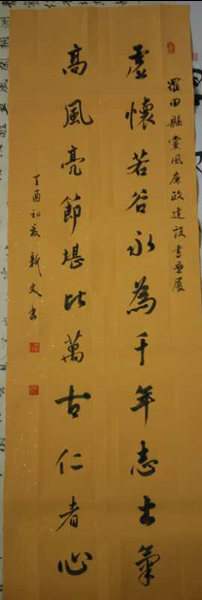 羅田縣黨風廉政建設書畫展
虛懷若谷永為千年志士氣
高風亮節堪比萬古仁者心
丁酉初夏新文書